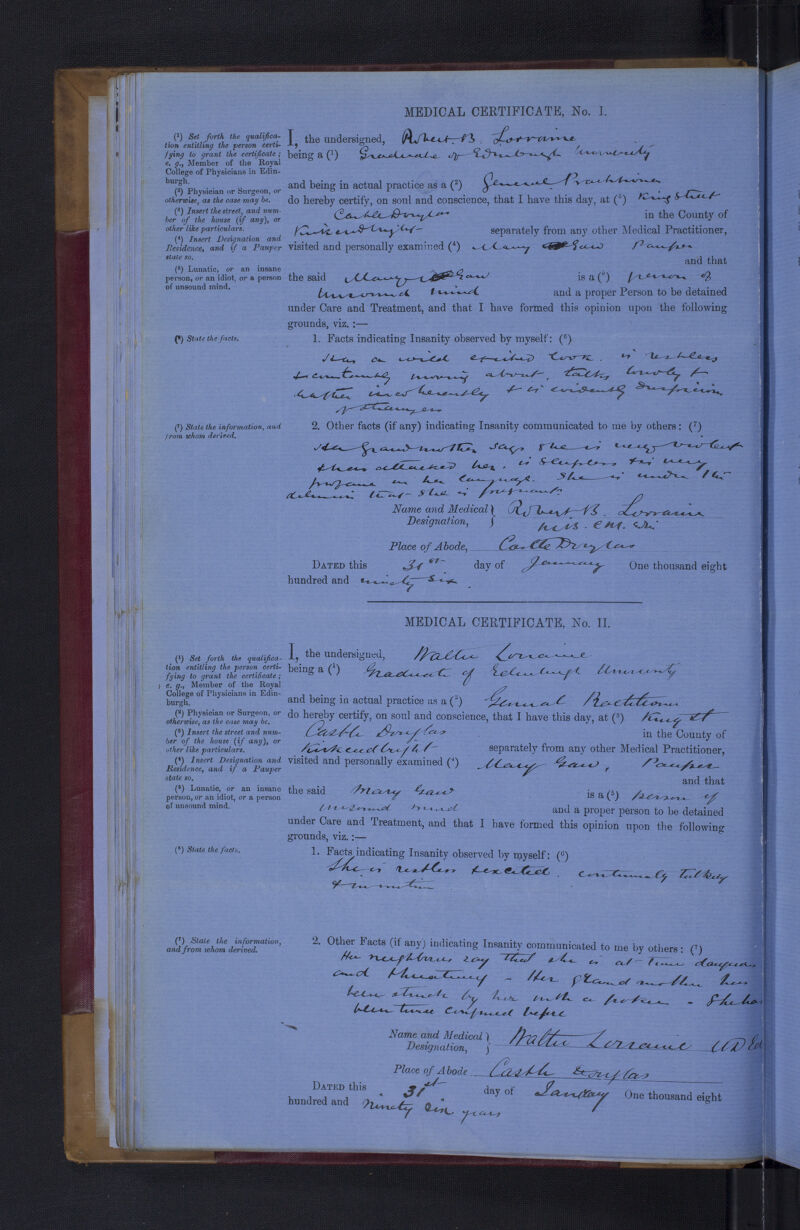 MEDICAL CERTIFICATE, No. I.
(¹) Set forth the qualifica-
tion entitling the person certi-
fying to grant the certificate;
e. g., Member of the Royal
College of Physicians in Edin-
burgh.
(²) Physician or Surgeon, or
otherwise, as the case may be.
(³) Insert the street, and num-
ber of the house (if any), or
other like particulars.
(⁴) Insert Designation and
Residence, and if a Pauper
state so.
(⁵) Lunatic, or an insane
person, or an idiot, or a person
of unsound mind.
I, the undersigned, Robert B. Lorraine
being a (¹) Graduate of Edinburgh University
and being in actual practice as a (²) General Practitioner
do hereby certify, on soul and conscience, that I have this day, at (³) King Street
Castle Douglas in the County of
Kirkcudbright separately from any other Medical Practitioner,
visited and personally examined (⁴) Mary Gaw Pauper
and that
the said Mary Gaw is a (⁵) person of
unsound mind and a proper Person to be detained
under Care and Treatment, and that I have formed this opinion upon the following
grounds, viz. :—
(⁶) State the facts.
1. Facts indicating Insanity observed by myself: (⁶)
Has a wild excited look. is restless
& constantly moving about. talks loudly &
rather incoherently & is evidently suspicious
of strangers
(⁷) State the information, and
from whom derived.
2. Other facts (if any) indicating Insanity communicated to me by others: (⁷)
Her Grandmother says she is very violent
& has attacked her. is sleepless & is very
profane in her language. She is under the
delusion that she is pregnant.
Name and Medical Designation, Robert B. Lorraine
M.B. C.M. Edin.
Place of Abode, Castle Douglas
DATED this 31st day of January One thousand eight
hundred and ninety six.
MEDICAL CERTIFICATE, No. II.
(¹) Set forth the qualifica-
tion entitling the person certi-
fying to grant the certificate;
e. g., Member of the Royal
College of Physicians in Edin-
burgh.
(²) Physician or Surgeon, or
otherwise, as the case may be.
(³) Insert the street and num-
ber of the house (if any), or
other like particulars.
(⁴) Insert Designation and
Residence, and if a Pauper
state so.
(⁵) Lunatic, or an insane
person, or an idiot, or a person
of unsound mind.
I, the undersigned, Walter Lorraine
being a (¹) Graduate of Edinburgh University
and being in actual practice as a (²) General Practitioner
do hereby certify, on soul and conscience, that I have this day, at (³) King St
Castle Douglas in the County of
Kirkcudbright separately from any other Medical Practitioner,
visited and personally examined (⁴) Mary Gaw, Pauper
and that
the said Mary Gaw is a (⁵) person of
unsound mind and a proper person to be detained
under Care and Treatment, and that I have formed this opinion upon the following
grounds, viz. :—
(⁶) State the facts.
1. Facts indicating Insanity observed by myself: (⁶)
She is restless & excited. continually talking
& in motion
(⁷) State the information,
and from whom derived.
2. Other Facts (if any) indicating Insanity communicated to me by others: (⁷)
Her neighbours say that she is at times dangerous
and threatening - Her grandmother has
been struck by her with a poker - She has
been twice confined before
Name and Medical Designation, Walter Lorraine MD Ed
Place of Abode Castle Douglas
DATED this 31st day of January One thousand eight
hundred and ninety six years